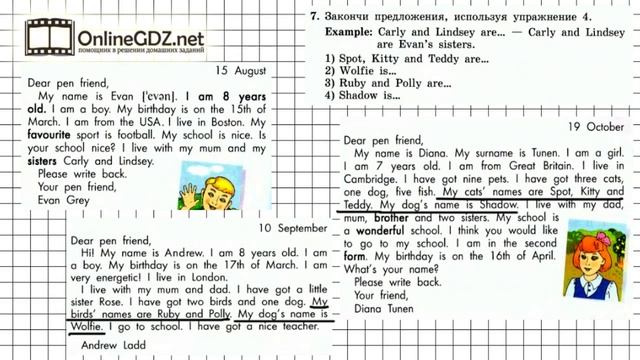 OnlineGDZ.net
помощник в решении домашних заданий
7. Закончи предложения, используя упражнение 4.
Example: Carly and Lindsey are... — Carly and Lindsey
are Evan's sisters.
1) Spot, Kitty and Teddy are...
2) Wolfie is...
3) Ruby and Polly are...
4) Shadow is...
15 August
Dear pen friend,
My name is Evan ['evən]. I am 8 years
old. I am a boy. My birthday is on the 15th of
March. I am from the USA. I live in Boston. My
favourite sport is football. My school is nice. Is
your school nice? I live with my mum and my
sisters Carly and Lindsey.
Please write back.
Your pen friend,
Evan Grey
19 October
Dear pen friend,
My name is Diana. My surname is Tunen. I am a girl.
I am 7 years old. I am from Great Britain. I live in
Cambridge. I have got nine pets. I have got three cats,
one dog, five fish. My cats' names are Spot, Kitty and
Teddy. My dog's name is Shadow. I live with my dad,
mum, brother and two sisters. My school is
a wonderful school. I think you would like
to go to my school. I am in the second
form. My birthday is on the 16th of April.
What's your name?
Please write back.
Your friend,
Diana Tunen
10 September
Dear pen friend,
Hi! My name is Andrew. I am 8 years old. I am
a boy. My birthday is on the 17th of March. I am
very energetic! I live in London.
I live with my mum and dad. I have got a little
sister Rose. I have got two birds and one dog. My
birds' names are Ruby and Polly. My dog's name is
Wolfie. I go to school. I have got a nice teacher.
Andrew Ladd